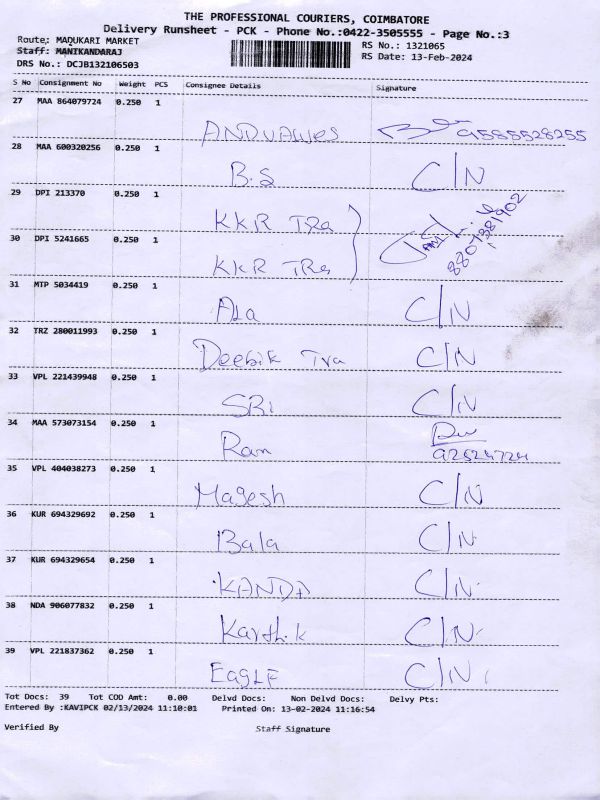 THE PROFESSIONAL COURIERS, COIMBATORE
Delivery Runsheet - PCK - Phone No.:0422-3505555 - Page No.:3
Route: MADUKARI MARKET
RS No.: 1321065
Staff: MANIKANDARAJ
RS Date: 13-Feb-2024
DRS No.: DCJB132106503
S No Consignment No Weight PCS Consignee Details Signature
27 MAA 864079724 0.250 1
9585528255
28 MAA 600320256 0.250 1
B.S C/N
29 DPI 213370 0.250 1
KKR TRa
8807381902
30 DPI 5241665 0.250 1
KKR TRa
31 MTP 5034419 0.250 1
Ala C/N
32 TRZ 280011993 0.250 1
Deebik Tra C/N
33 VPL 221439948 0.250 1
SRI C/N
34 MAA 573073154 0.250 1
Ram
35 VPL 404038273 0.250 1
Magesh C/N
36 KUR 694329692 0.250 1
Bala C/N
37 KUR 694329654 0.250 1
KANDA C/N
38 NDA 906077832 0.250 1
Karthik C/N
39 VPL 221837362 0.250 1
EagLE C/N
Tot Docs: 39 Tot COD Amt: 0.00 Delvd Docs: Non Delvd Docs: Delvy Pts:
Entered By :KAVIPCK 02/13/2024 11:10:01 Printed On: 13-02-2024 11:16:54
Verified By Staff Signature